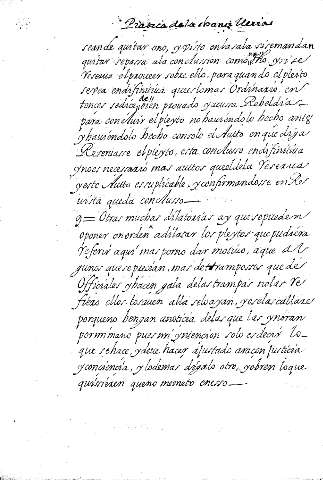 Practica de la chancilleria
se ande quitar ono, y visto en la sala si se mandan
quitar se passa ala conclusion como dho, y si se
Reserua el proueer sobre ello, para quando el pleito
se vea en difinitiua que es lo mas Ordinario, en
tonces se dice den prouado y acussa Rebeldia
para concluir el pleyto no hauiendolo hecho antes
y hauiendolo hecho con solo el Autto en que daja
Reseruasse el pleyto, esta concluso en difinitiua
y no es necesario mas auttos que el de la Reserua
y este Autto es suplicable, y confirmandosse en Re
uista queda concluso
9 = Otras muchas dilatorias ay que se pueden
oponer en orden a dilatar los pleytos que pudiera
Referir aqui mas por no dar motiuo, a que al
gunos que se precian, mas de tramposos que de
Officiales y hacen gala de las trampas no las Re
fiero ellos los auen alla se lo ayan, yo se las callare
por que no bengan a noticia de las que las ygnoran
por mi mano pues mi yntencion solo es decir lo
que se hace, y deue hacer ajustado a raçon justicia
y conciencia, y lo demas digalo otro, y obren lo que
quisieren que no me meto en esso